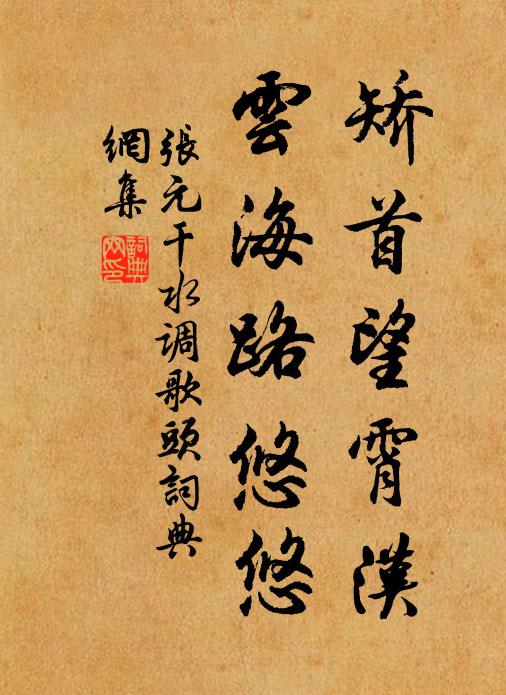 矯首望霄漢
雲海路悠悠
張元干水调歌頭詞典
網集
詞典网印